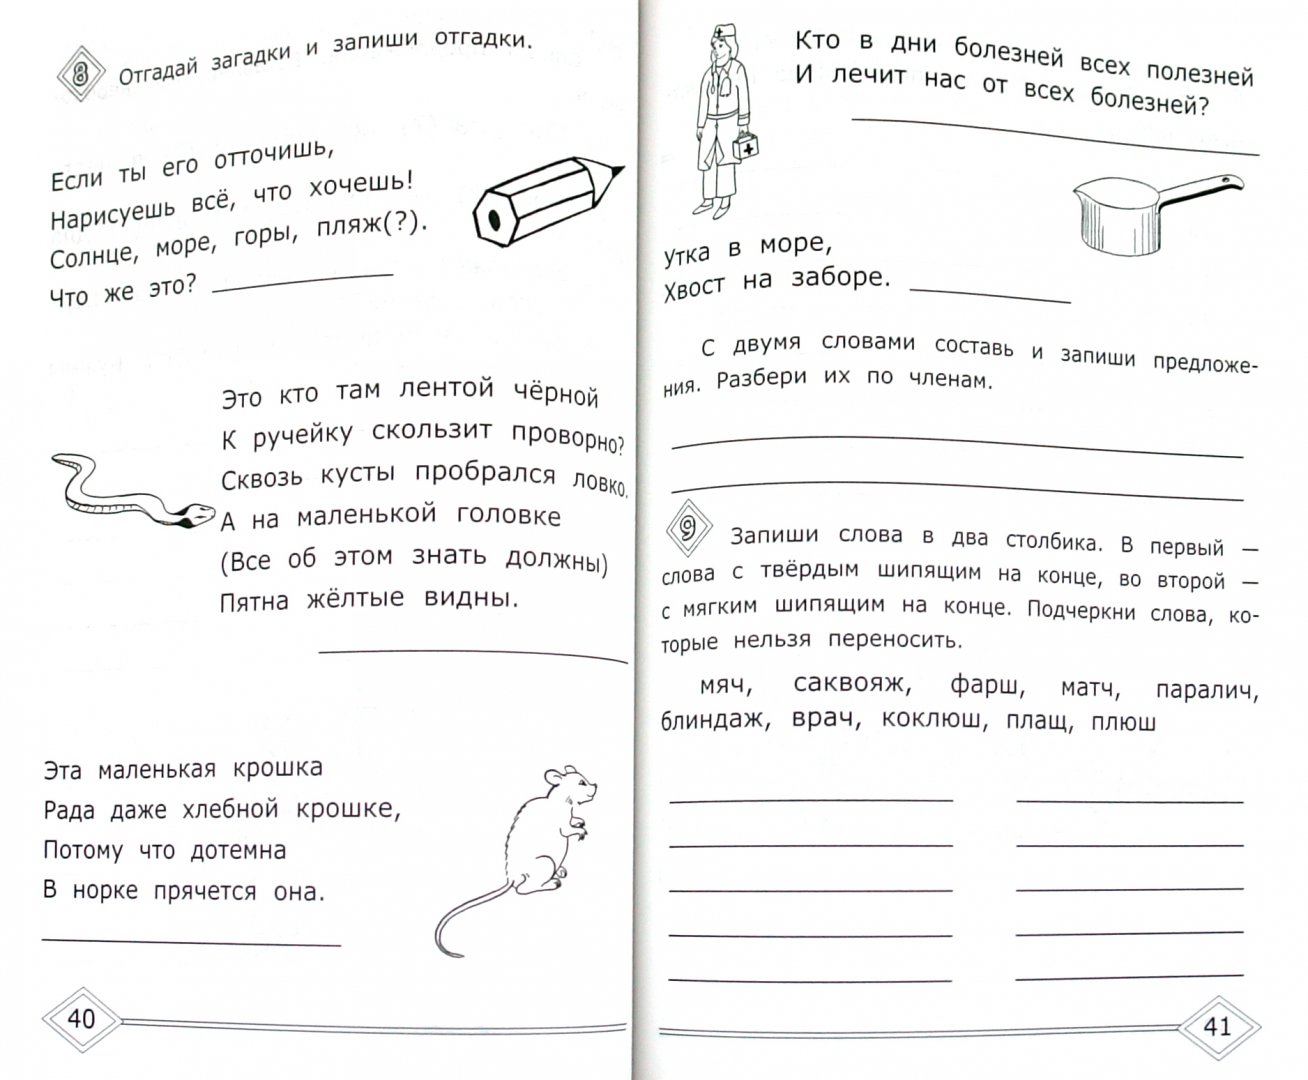 8 Отгадай загадки и запиши отгадки.
Если ты его отточишь,
Нарисуешь всё, что хочешь!
Солнце, море, горы, пляж(?).
Что же это?
Это кто там лентой чёрной
К ручейку скользит проворно?
Сквозь кусты пробрался ловко.
А на маленькой головке
(Все об этом знать должны)
Пятна жёлтые видны.
Эта маленькая крошка
Рада даже хлебной крошке,
Потому что дотемна
В норке прячется она.
40
Кто в дни болезней всех полезней
И лечит нас от всех болезней?
Утка в море,
Хвост на заборе.
С двумя словами составь и запиши предложе-
ния. Разбери их по членам.
9 Запиши слова в два столбика. В первый —
слова с твёрдым шипящим на конце, во второй —
с мягким шипящим на конце. Подчеркни слова, ко-
торые нельзя переносить.
мяч, саквояж, фарш, матч, паралич,
блиндаж, врач, коклюш, плащ, плюш
41